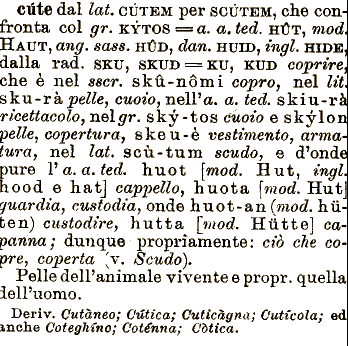 cúte dal lat. CÚTEM per SCÚTEM, che con-
fronta col gr. KÝTOS = a. a. ted. HÛT, mod.
HAUT, ang. sass. HŶD, dan. HUID, ingl. HIDE,
dalla rad. SKU, SKUD = KU, KUD coprire,
che è nel sscr. skû-nômi copro, nel lit.
sku-rà pelle, cuoio, nell'a. a. ted. skiu-rà
ricettacolo, nel gr. ský-tos cuoio e skýlon
pelle, copertura, skeu-è vestimento, arma-
tura, nel lat. scù-tum scudo, e d'onde
pure l'a. a. ted. huot [mod. Hut, ingl.
hood e hat] cappello, huota [mod. Hut]
guardia, custodia, onde huot-an (mod. hü-
ten) custodire, hutta [mod. Hütte] ca-
panna; dunque propriamente: ciò che co-
pre, coperta (v. Scudo).
Pelle dell'animale vivente e propr. quella
dell'uomo.
Deriv. Cutàneo; Cútica; Cuticàgna; Cuticola; ed
anche Coteghíno; Coténna; Còtica.